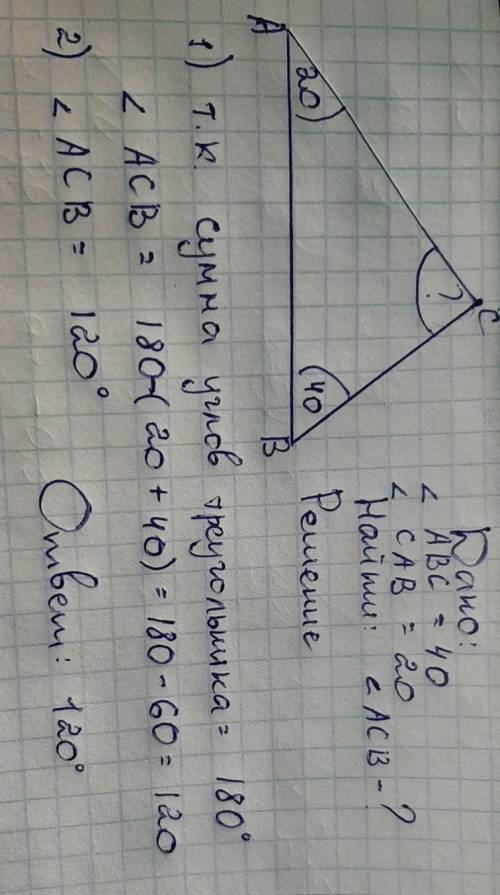 C
?
20
40
A
B
Дано:
< ABC = 40
< CAB = 20
Найти: < ACB - ?
Решение
1) т.к. сумма углов треугольника = 180°
< ACB = 180-(20+40) = 180-60 = 120
2) < ACB = 120°
Ответ: 120°